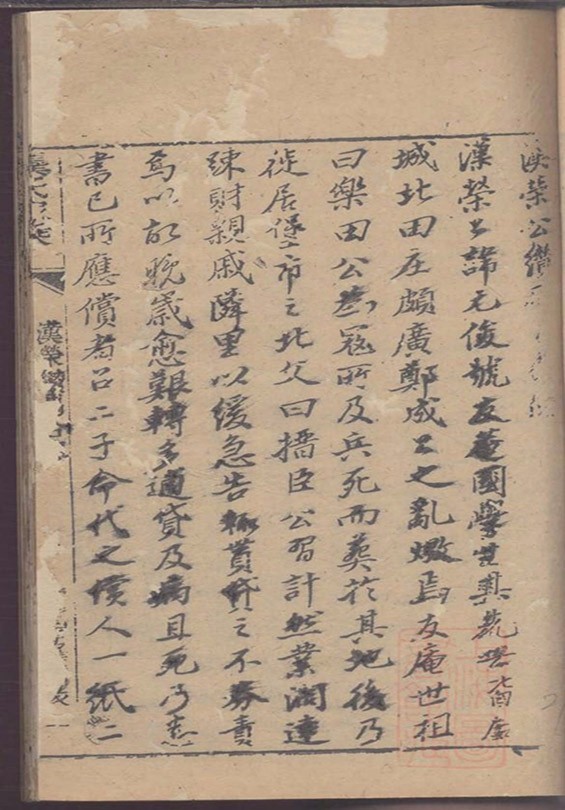 漢榮公繼
漢榮公諱元俊號友菴國學生其
城北田庄頗廣鄭成公之亂燬焉友庵世祖
曰樂田公為寇所及兵死而葬於其地後乃
徙居堡市之北父曰搢臣公習計然業濶達
疎財親戚隣里以緩急告輒貰貸之不券責
焉以故晚歲愈艱轉多逋貸及病且死乃悉
書已所應償者召二子命代之償人一紙二
漢榮